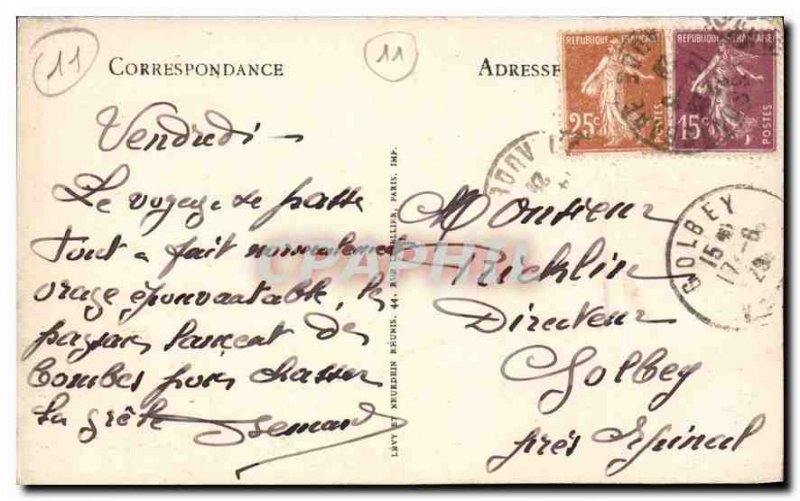 11
11
CORRESPONDANCE
ADRESSE
REPUBLIQUE FRANCAISE
25c
POSTES
REPUBLIQUE FRANCAISE
15c
POSTES
Vendredi
Le voyage se passe
tout à fait normalement
orage épouvantable, les
paysans lancent des
bombes pour chasser
la grêle
LÉVY ET NEURDEIN RÉUNIS, 44, RUE LETELLIER, PARIS, IMP.
Monsieur
Ricklin
Directeur
Golbey
près Epinal
GOLBEY
15
17-8
CPAPHIL